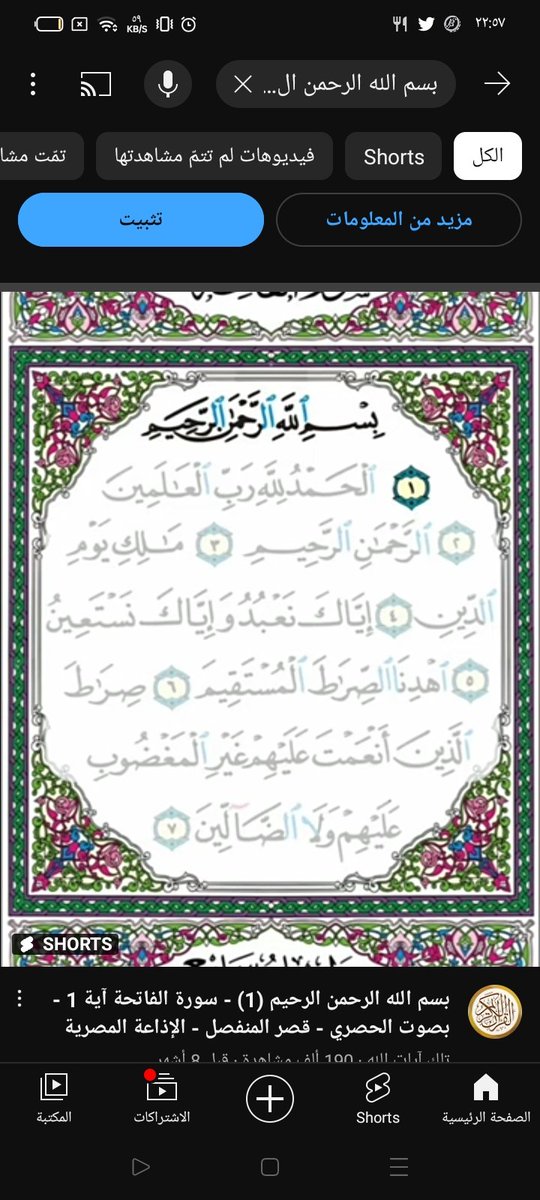 ٥٩ KB/S ٢٢:٥٧
بسم الله الرحمن ال...
الكل Shorts فيديوهات لم تتمّ مشاهدتها تمّت مشا
مزيد من المعلومات تثبيت
بِسْمِ ٱللَّهِ ٱلرَّحْمَٰنِ ٱلرَّحِيمِ
١ ٱلْحَمْدُ لِلَّهِ رَبِّ ٱلْعَٰلَمِينَ
٢ ٱلرَّحْمَٰنِ ٱلرَّحِيمِ ٣ مَٰلِكِ يَوْمِ
ٱلدِّينِ ٤ إِيَّاكَ نَعْبُدُ وَإِيَّاكَ نَسْتَعِينُ
٥ ٱهْدِنَا ٱلصِّرَٰطَ ٱلْمُسْتَقِيمَ ٦ صِرَٰطَ
ٱلَّذِينَ أَنْعَمْتَ عَلَيْهِمْ غَيْرِ ٱلْمَغْضُوبِ
عَلَيْهِمْ وَلَا ٱلضَّآلِّينَ ٧
SHORTS
بسم الله الرحمن الرحيم (1) - سورة الفاتحة آية 1 -
بصوت الحصري - قصر المنفصل - الإذاعة المصرية
تلك آيات الله · 190 ألف مشاهدة · قبل 8 أشهر
الصفحة الرئيسية Shorts الاشتراكات المكتبة